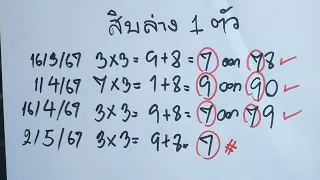 สิบล่าง 1 ตัว
16/3/67 3×3= 9+8= 7 ออก 78 ✓
1/4/67 7×3= 1+8= 9 ออก 90 ✓
16/4/67 3×3= 9+8= 7 ออก 79 ✓
2/5/67 3×3= 9+8= 7 #